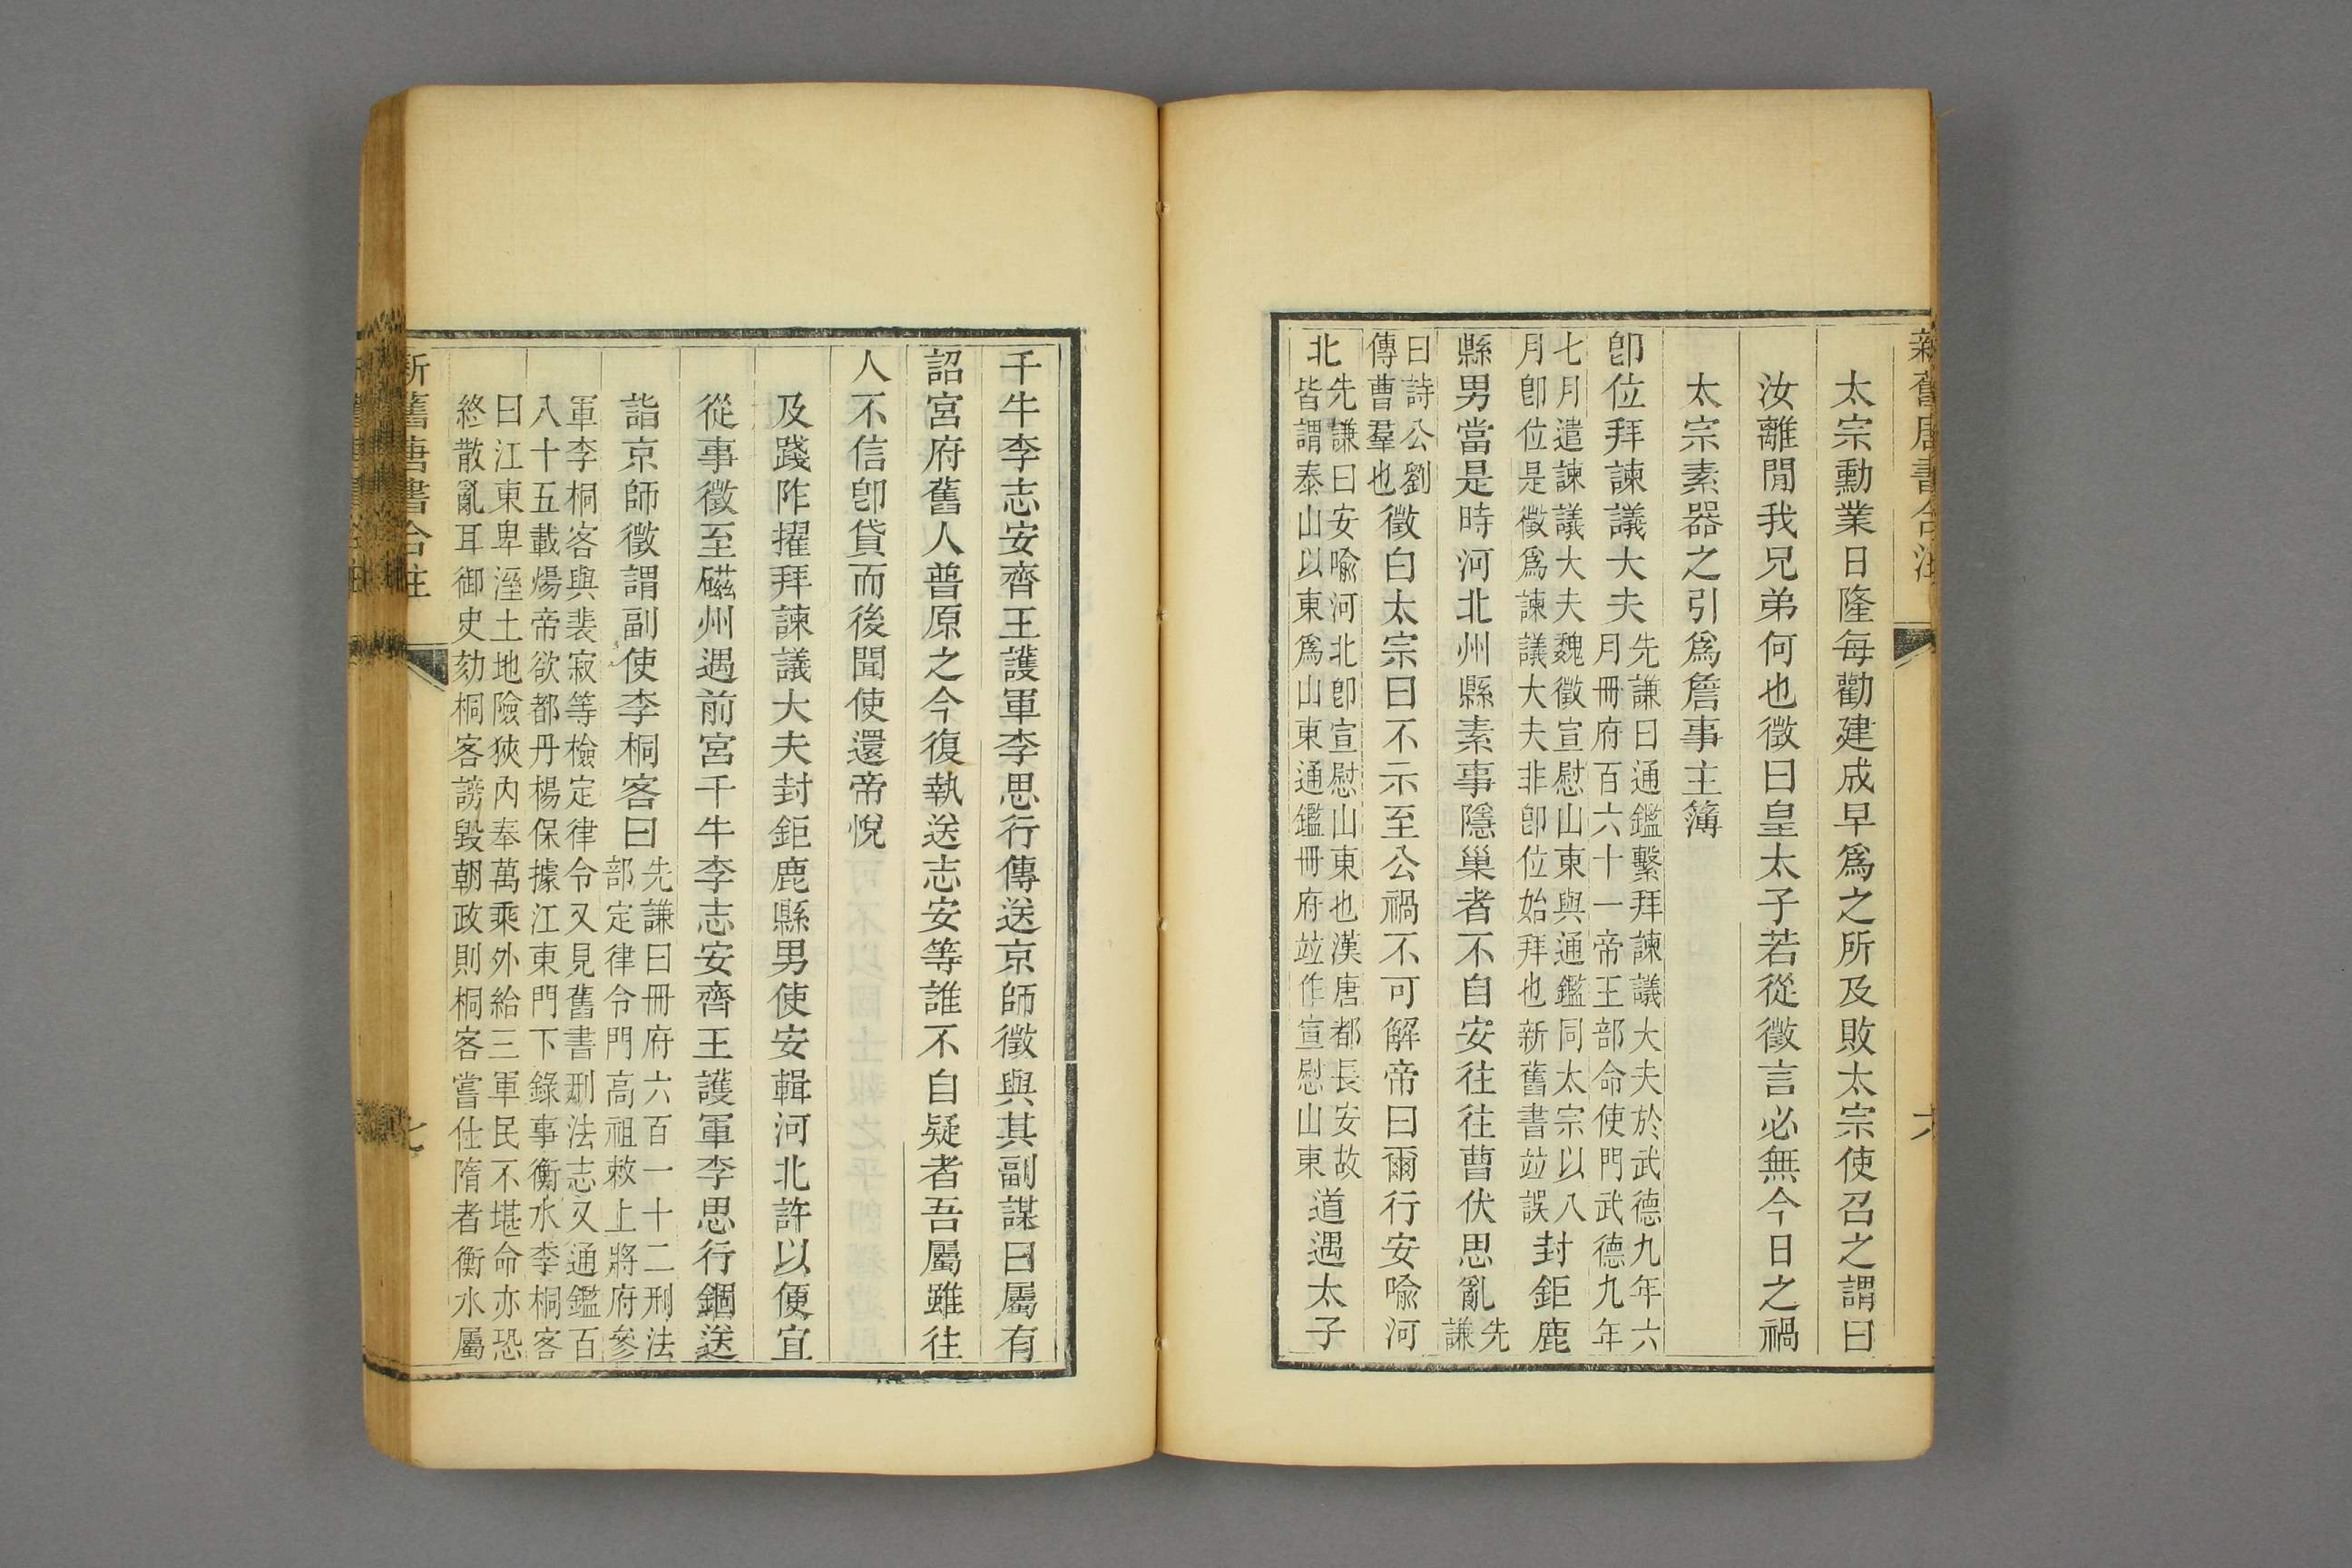 新舊唐書合注
六
太宗勳業日隆每勸建成早爲之所及敗太宗使召之謂曰
汝離閒我兄弟何也徵曰皇太子若從徵言必無今日之禍
太宗素器之引爲詹事主簿
卽位拜諫議大夫
先謙曰通鑑繫拜諫議大夫於武德九年六
月冊府百六十一帝王部命使門武德九年
七月遣諫議大夫魏徵宣慰山東與通鑑同太宗以八
月卽位是徵爲諫議大夫非卽位始拜也新舊書竝誤
封鉅鹿
縣男當是時河北州縣素事隱巢者不自安往往曹伏思亂
先
謙
曰詩公劉
傳曹羣也
徵白太宗曰不示至公禍不可解帝曰爾行安喻河
北
先謙曰安喻河北卽宣慰山東也漢唐都長安故
皆謂泰山以東爲山東通鑑冊府竝作宣慰山東
道遇太子
千牛李志安齊王護軍李思行傳送京師徵與其副謀曰屬有
詔宮府舊人普原之今復執送志安等誰不自疑者吾屬雖往
人不信卽貸而後聞使還帝悅
及踐阼擢拜諫議大夫封鉅鹿縣男使安輯河北許以便宜
從事徵至磁州遇前宮千牛李志安齊王護軍李思行錮送
詣京師徵謂副使李桐客曰
先謙曰冊府六百一十二刑法
部定律令門高祖敕上將府參
軍李桐客與裴寂等檢定律令又見舊書刑法志又通鑑百
八十五載煬帝欲都丹楊保據江東門下錄事衡水李桐客
曰江東卑溼土地險狹內奉萬乘外給三軍民不堪命亦恐
終散亂耳御史劾桐客謗毀朝政則桐客嘗仕隋者衡水屬
新舊唐書合注
七